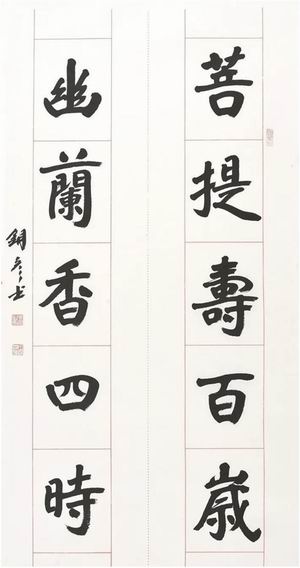 菩提壽百歳
幽蘭香四時